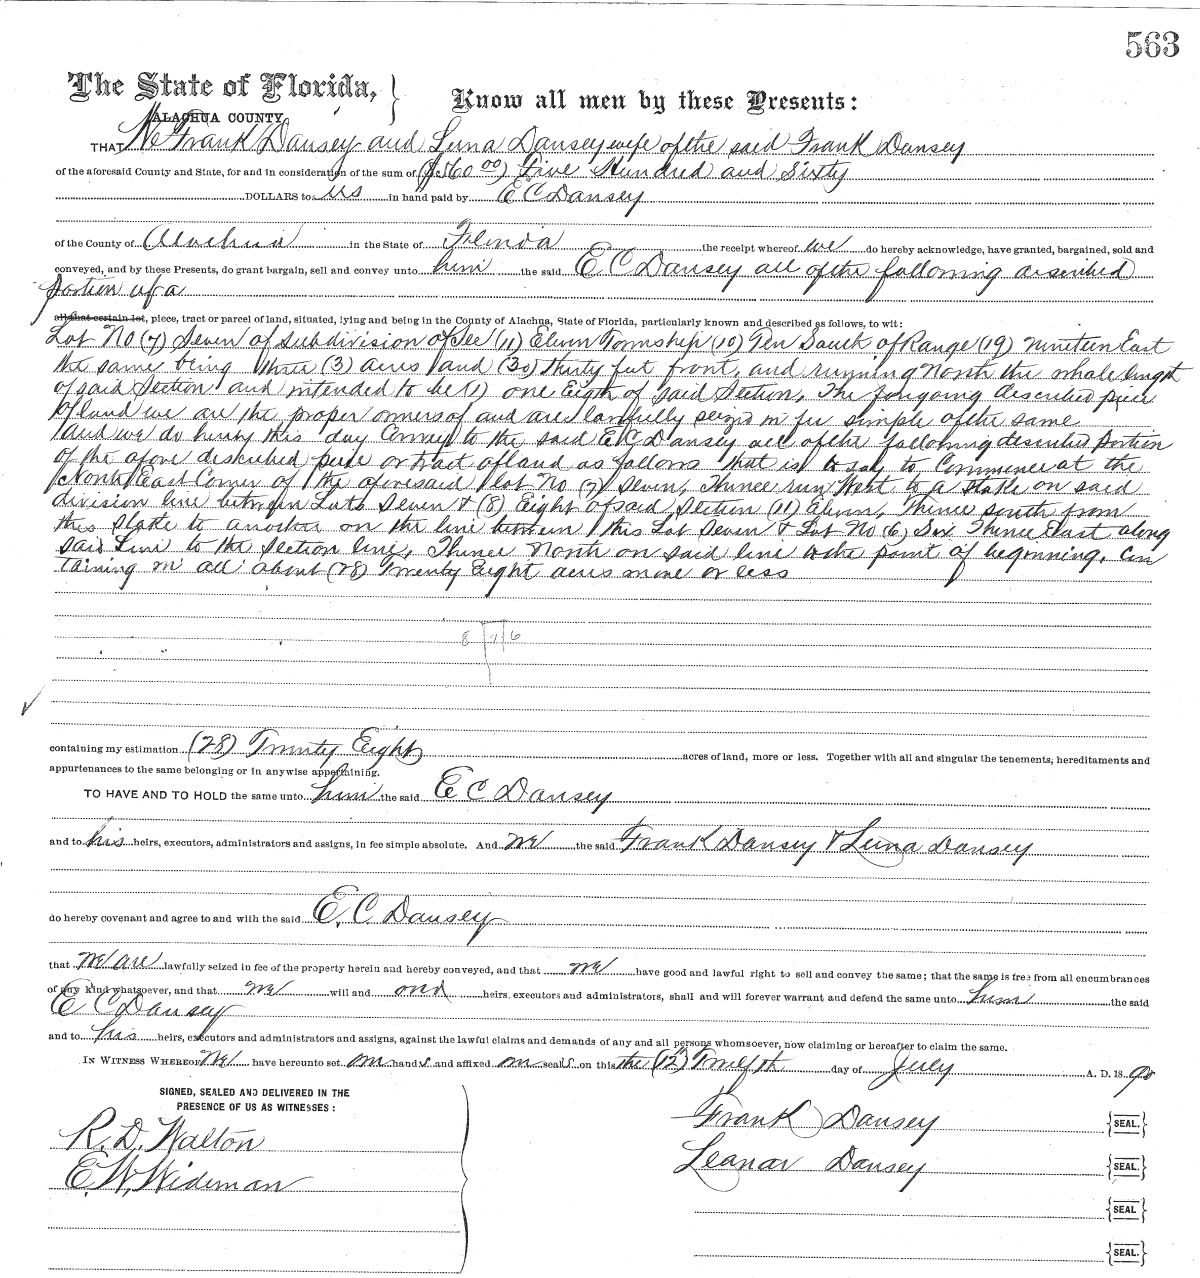 563
The State of Florida, } Know all men by these Presents:
ALACHUA COUNTY
THAT We Frank Dansey and Lena Dansey wife of the said Frank Dansey
of the aforesaid County and State, for and in consideration of the sum of ($560 00) Five Hundred and Sixty
DOLLARS to us in hand paid by E C Dansey
of the County of Alachua in the State of Florida the receipt whereof we do hereby acknowledge, have granted, bargained, sold and
conveyed, and by these Presents, do grant bargain, sell and convey unto him the said E C Dansey all of the following described
portion of a
all that certain lot, piece, tract or parcel of land, situated, lying and being in the County of Alachua, State of Florida, particularly known and described as follows, to wit:
Lot No (7) Seven of subdivision of Sec (11) Elevn Township (10) Ten South of Range (19) nineteen East
the same being three (3) acres and (30) thirty feet front, and running North the whole lenght
of said Section and intended to be (1) one Eigth of said Section, The forgoing described piece
of land we are the proper owners of and are lawfully seized in fee simple of the same
And we do hereby this day Convey to the said E. C. Dansey all of the following described portion
of the afove discribed piece or tract of land as follows that is to say to Commence at the
North East Corner of the aforesaid lot No (7) Seven, Thence run West to a stake on said
division line between Lots Seven & (8) Eight of said Section (11) Elevn, Thence south from
this stake to another on the line between this Lot Seven & Lot No (6) Six Thence East along
said Line to the Section line, Thence North on said line to the point of beginning, Con
taining in all about (28) Twenty Eight acres more or less
8 7 6
containing my estimation (28) Twenty Eight acres of land, more or less. Together with all and singular the tenements, hereditaments and
appurtenances to the same belonging or in anywise appertaining.
TO HAVE AND TO HOLD the same unto him the said E C Dansey
and to his heirs, executors, administrators and assigns, in fee simple absolute. And we the said Frank Dansey & Lena Dansey
do hereby covenant and agree to and with the said E. C. Dansey
that we are lawfully seized in fee of the property herein and hereby conveyed, and that we have good and lawful right to sell and convey the same; that the same is free from all encumbrances
of any kind whatsoever, and that we will and our heirs, executors and administrators, shall and will forever warrant and defend the same unto him the said
E C Dansey
and to his heirs, executors and administrators and assigns, against the lawful claims and demands of any and all persons whomsoever, now claiming or hereafter to claim the same.
IN WITNESS WHEREOF We have hereunto set our hands and affixed our seals on this the (12th) Twelfth day of July A. D. 1890
SIGNED, SEALED AND DELIVERED IN THE
PRESENCE OF US AS WITNESSES:
R. D. Walton
E. W. Wideman
Frank Dansey {SEAL.}
Leanar Dansey {SEAL.}
{SEAL}
{SEAL.}